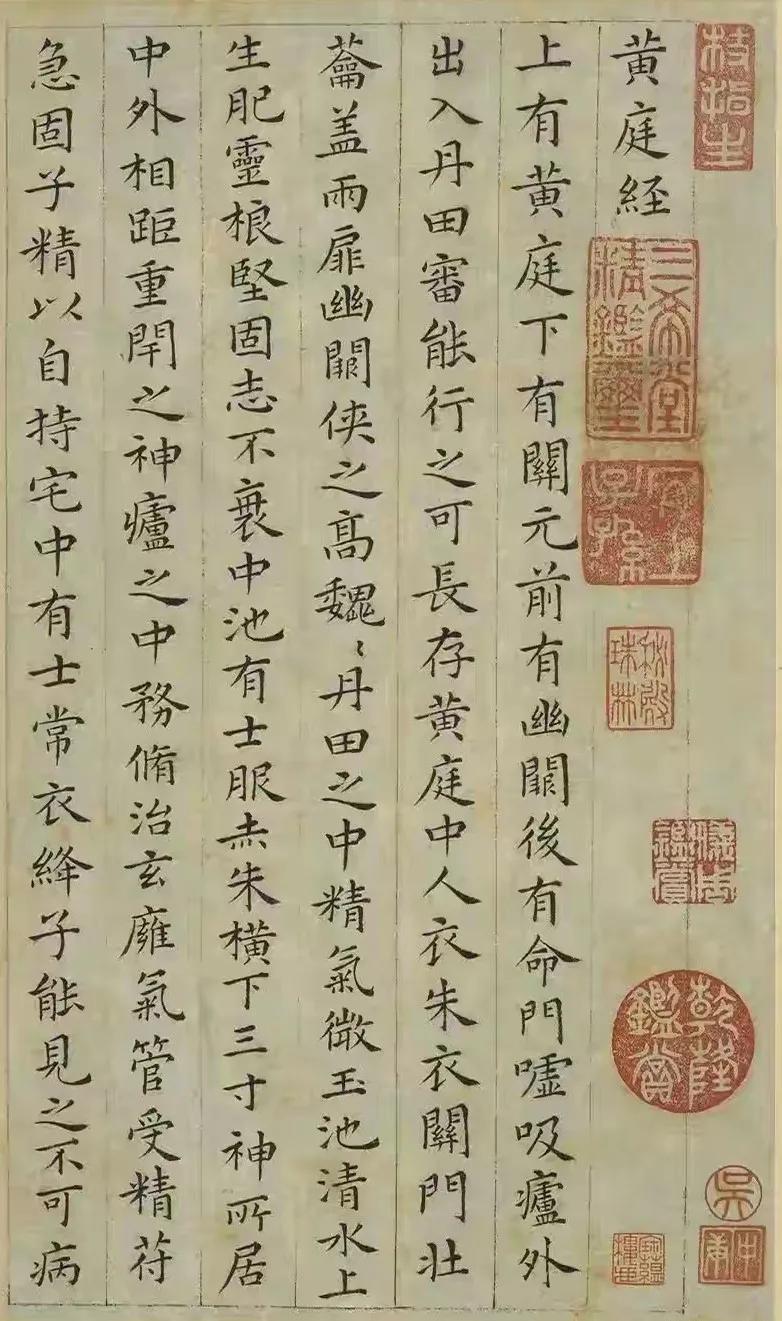 枝指生
黃庭経
上有黃庭下有關元前有幽闕後有命門噓吸廬外
出入丹田審能行之可長存黃庭中人衣朱衣關門壯
蘥盖兩扉幽闕俠之高魏〻丹田之中精氣微玉池清水上
生肥靈根堅固志不衰中池有士服赤朱橫下三寸神所居
中外相距重閇之神廬之中務脩治玄廱氣管受精苻
急固子精以自持宅中有士常衣絳子能見之不可病
三希堂精鑑璽
宜子孫
秋殿珠林
乾隆鑑賞
吳